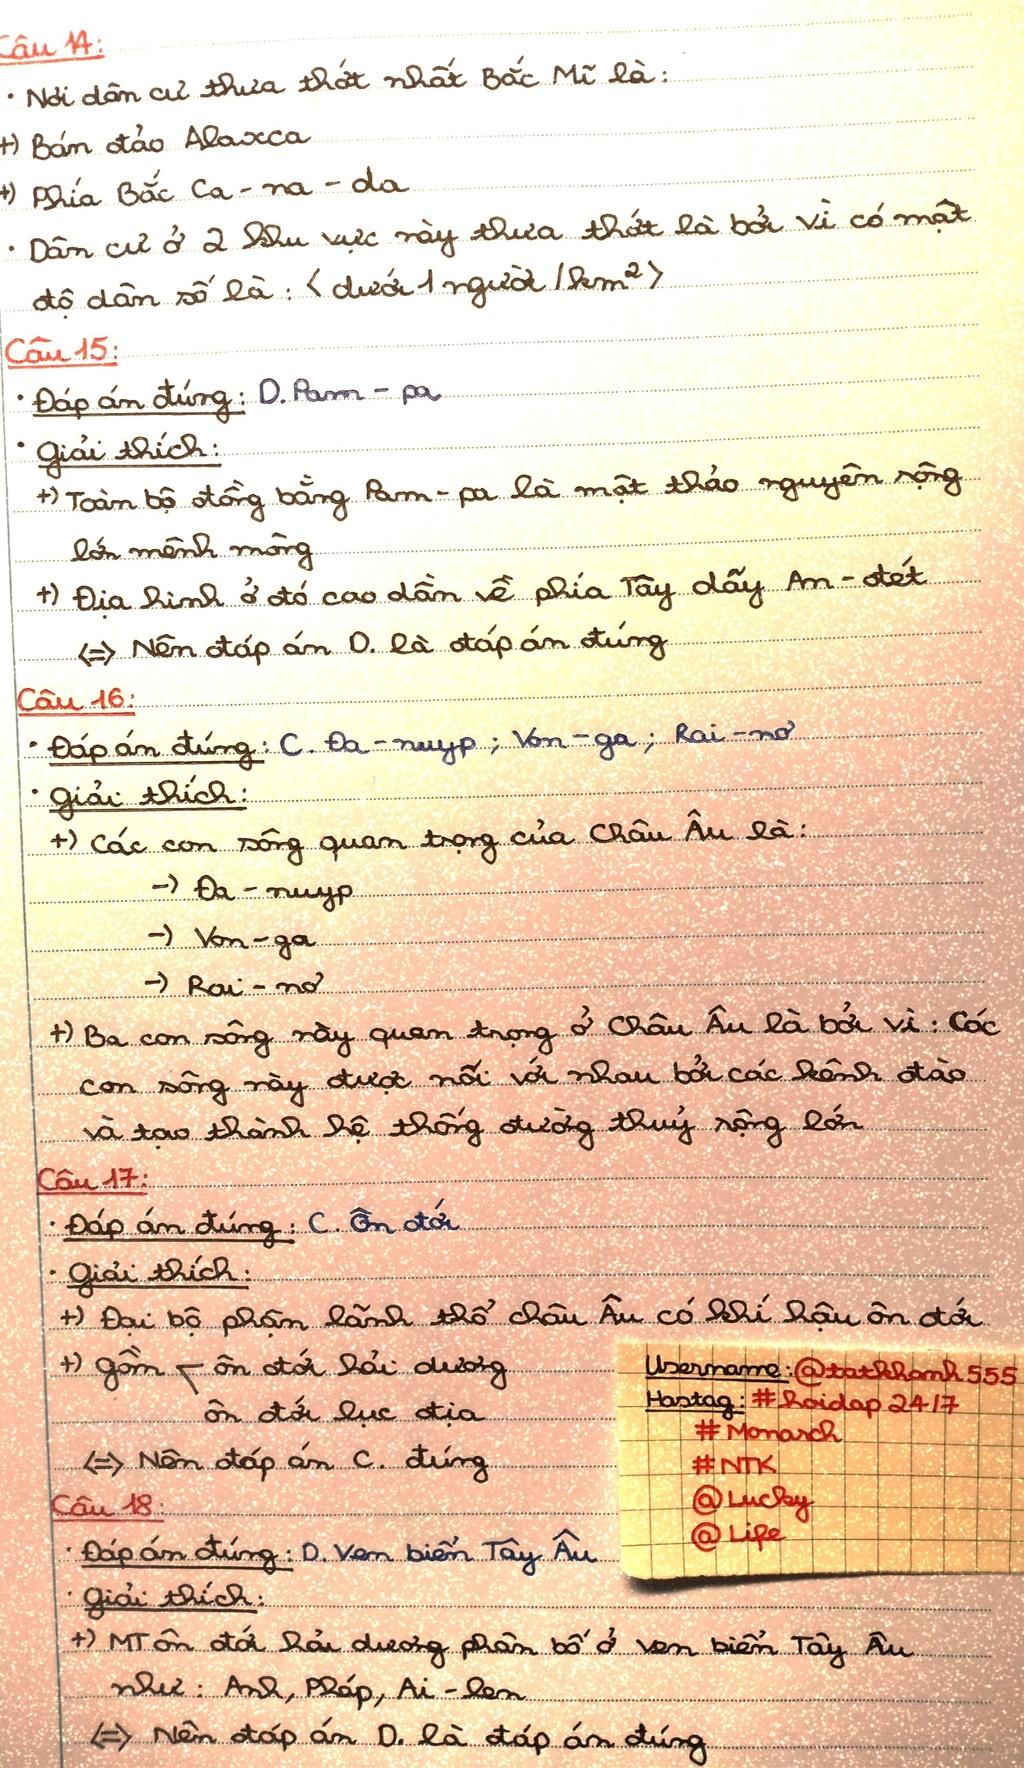 Câu 14:
· Nơi dân cư thưa thớt nhất Bắc Mĩ là:
+) Bán đảo Alaxca
+) Phía Bắc Ca-na-da
· Dân cư ở 2 khu vực này thưa thớt là bởi vì có mật
độ dân số là: < dưới 1 người /km²>
Câu 15:
· Đáp án đúng: D. Pam-pa
· Giải thích:
+) Toàn bộ đồng bằng Pam-pa là một thảo nguyên rộng
lớn mênh mông
+) Địa hình ở đó cao dần về phía Tây dãy An-đét
<=> Nên đáp án D. là đáp án đúng
Câu 16:
· Đáp án đúng: C. Đa-nuyp; Von-ga; Rai-nơ
· Giải thích:
+) Các con sông quan trọng của Châu Âu là:
-) Đa-nuyp
-) Von-ga
-) Rai-nơ
+) Ba con sông này quan trọng ở Châu Âu là bởi vì: Các
con sông này được nối với nhau bởi các kênh đào
và tạo thành hệ thống đường thuỷ rộng lớn
Câu 17:
· Đáp án đúng: C. Ôn đới
· Giải thích:
+) Đại bộ phận lãnh thổ châu Âu có khí hậu ôn đới
+) Gồm ôn đới hải dương
ôn đới lục địa
<=> Nên đáp án C. đúng
Username: @tatkhanh555
Hastag: #hoidap 24/7
#Monarch
#NTK
@Lucky
@Life
Câu 18:
· Đáp án đúng: D. Ven biển Tây Âu
· Giải thích:
+) MT ôn đới hải dương phân bố ở ven biển Tây Âu
như: Anh, Pháp, Ai-len
<=> Nên đáp án D. là đáp án đúng